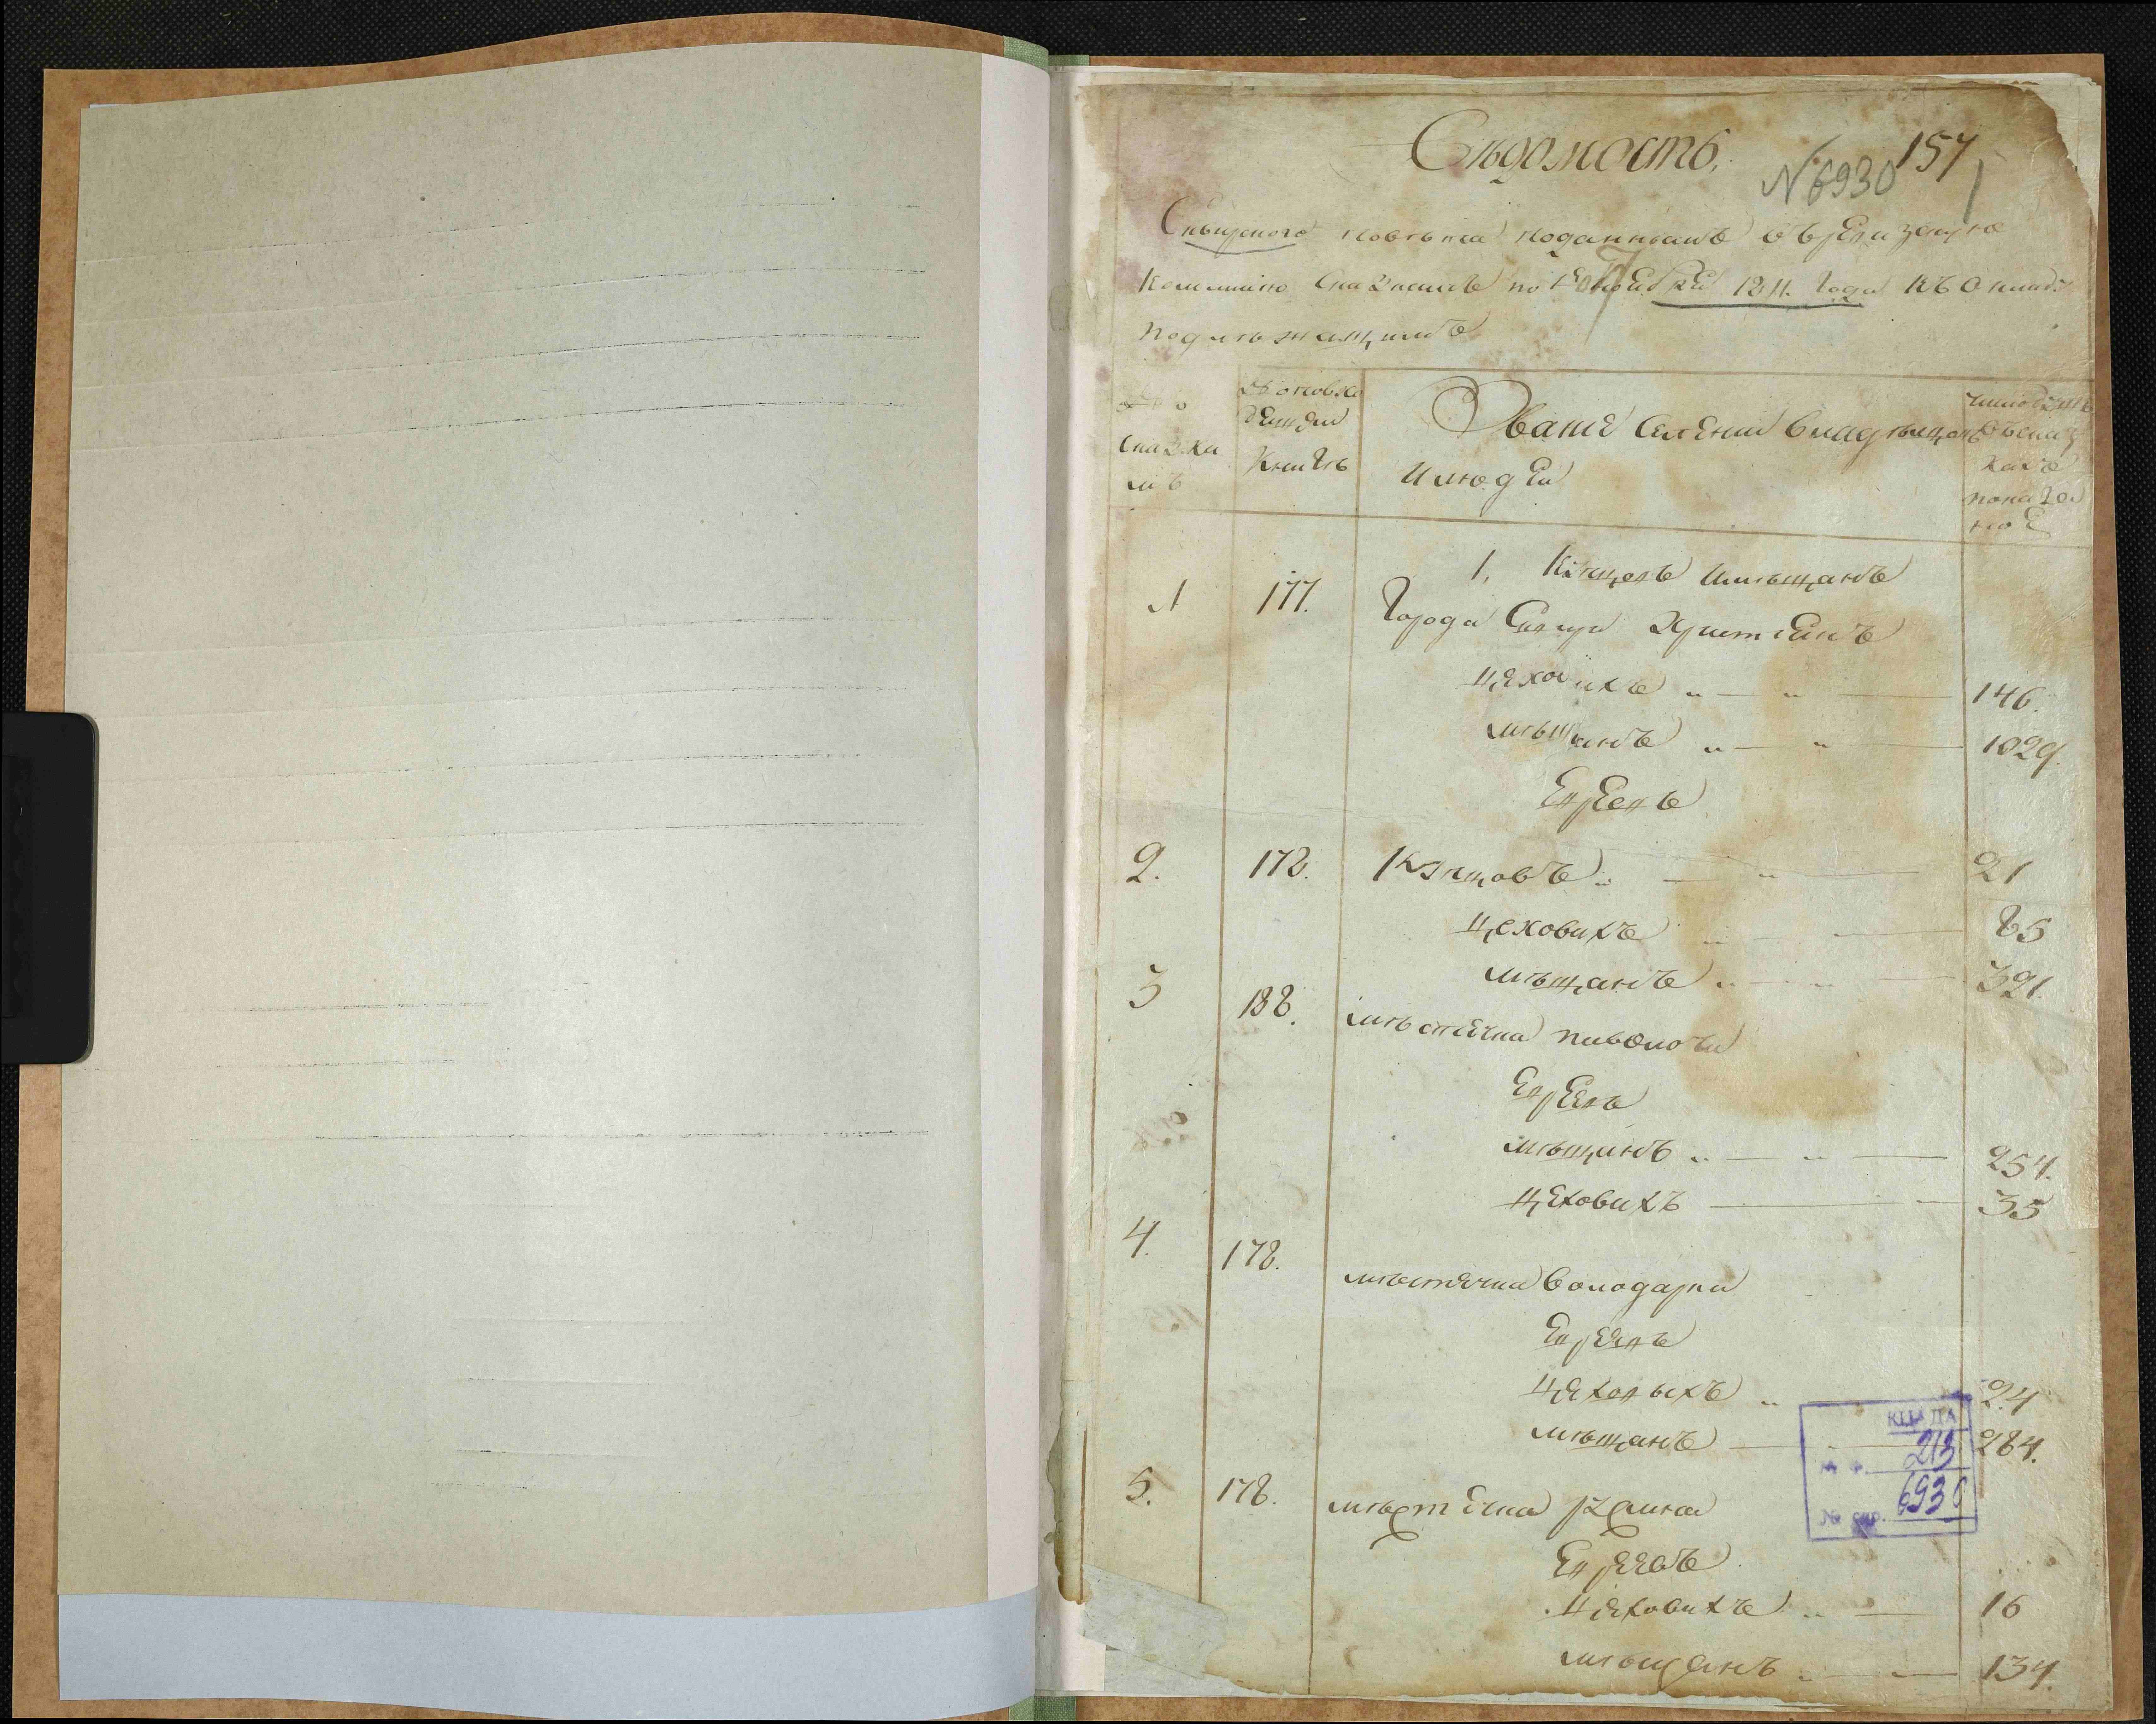 Вѣдомость.
157
№ 6930
1
Сквирского повѣта поданнымъ въ ревизскую
коммисию сказкамъ по 1е Ноября 1811. Года къ окладу
подлѣжащимъ
№
сказкамъ
По новоис
книгѣ
Званіе селеній владѣлцовъ
и людей
число душъ
въ сказ
кахъ
показан
ное
1, Купцовъ и мѣщанъ
1 177. Города Сквиры Христіянъ
цеховихъ „ — „ — 146.
мѣщанъ „ — „ — 1029.
Евреевъ
2. 178. Купцовъ „ — „ — 21
цеховихъ „ — 85
мѣщанъ „ — „ — 391.
3 188. мѣстечка Паволочи
Евреевъ
мѣщанъ „ — „ — 254.
цеховихъ — 35
4. 178. мѣстечка Володарки
Евреевъ
цеховыхъ „ 24
мѣщанъ — 284.
5. 178. мѣстечка Ружина
Евреевъ
цеховихъ „ — 16
мѣщанъ „ — 134.
КЦІАДА
№ ф. 213
№ спр. 6930